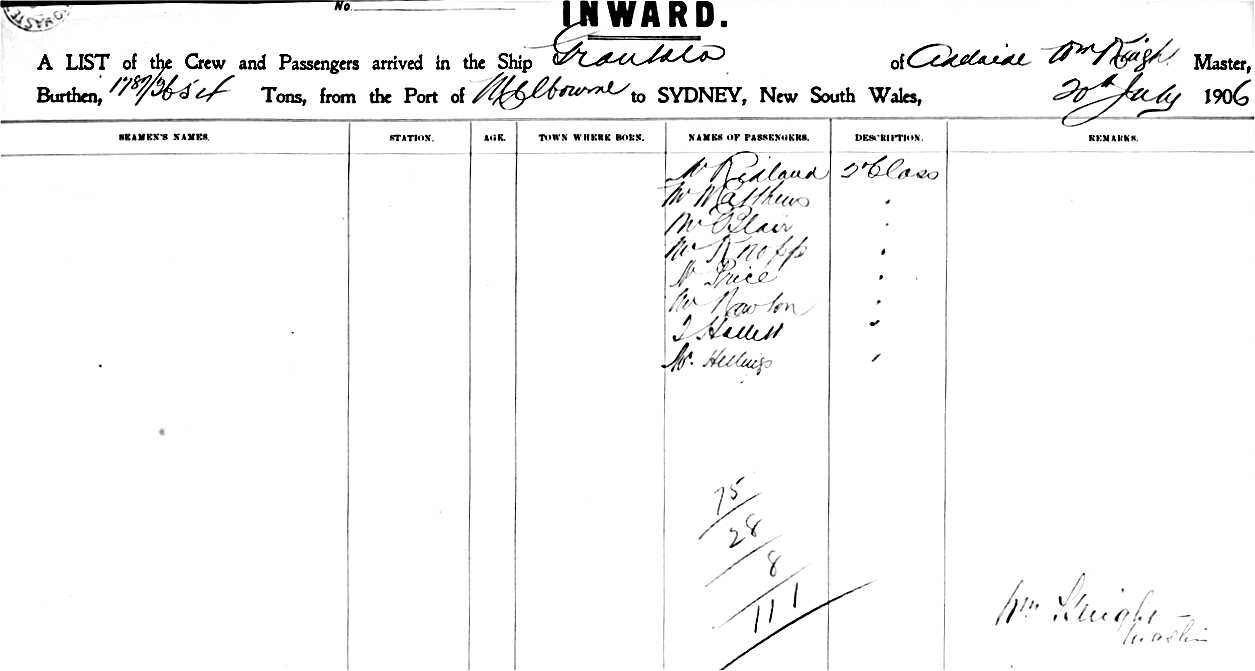 No.
INWARD.
A LIST of the Crew and Passengers arrived in the Ship of Adelaide Wm Knight Master,
Burthen, Tons, from the Port of Melbourne to SYDNEY, New South Wales, 20th July 1906
SEAMEN'S NAMES. STATION. AGE. TOWN WHERE BORN. NAMES OF PASSENGERS. DESCRIPTION. REMARKS.
Mr Ridland 2d Class
Mr Matthews "
Mr Blair "
Mr Knopp "
Mr Price "
Mr Newton "
Hallett "
Mr. Hellings "
75
28
8
111
Wm Knight
Master